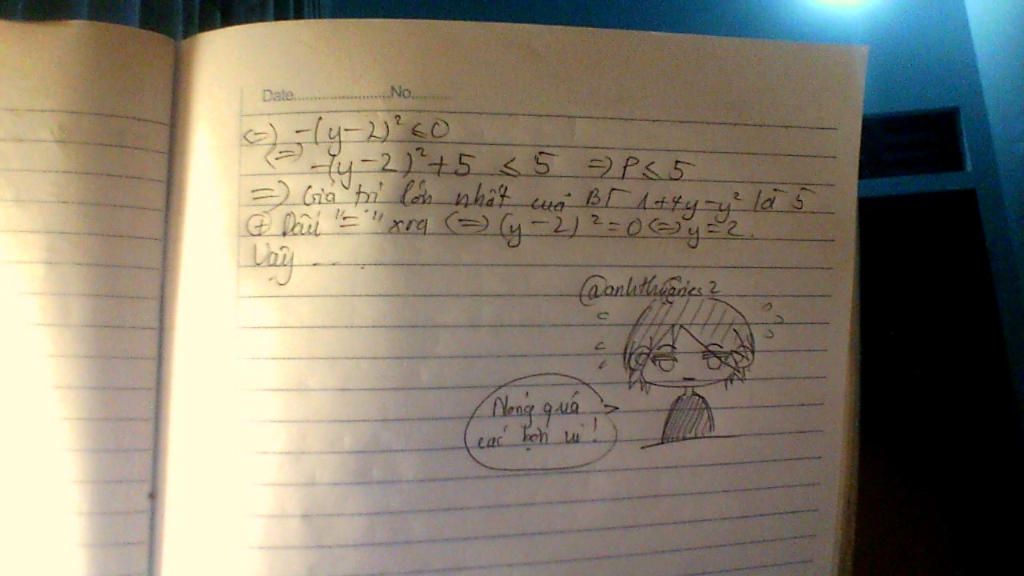 Date........................No..........
<=> -(y-2)² ≤ 0
<=> -(y-2)² + 5 ≤ 5 => P ≤ 5
=> Giá trị lớn nhất của BT 1+4y-y² là 5
(+) Dấu "=" xra <=> (y-2)² = 0 <=> y = 2.
Vậy ......
Nóng quá
các bạn ui!